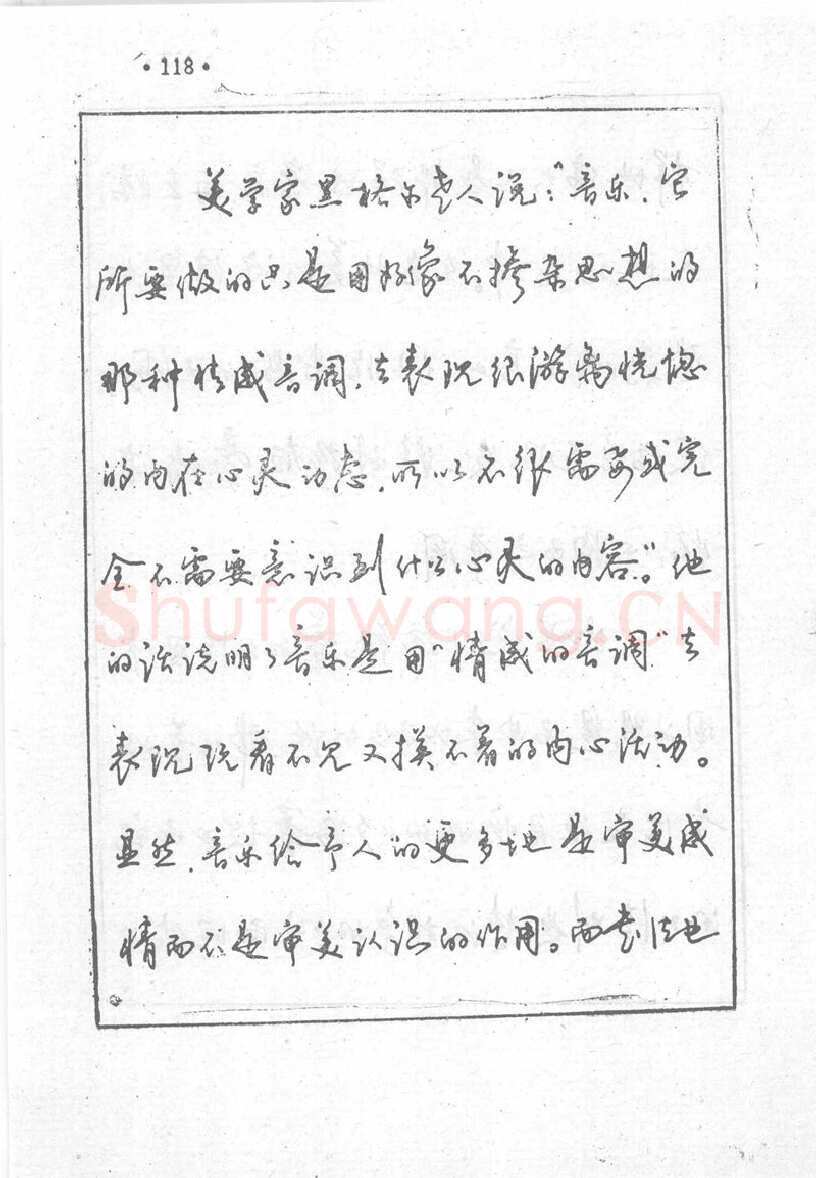 ·118·
美学家黑格尔老人说:“音乐,它
所要做的只是用好像不掺杂思想的
那种情感音调,去表现很游离恍惚
的内在心灵动态,所以不很需要或完
全不需要意识到什么心灵的内容。”他
的话说明了音乐是用“情感的音调”去
表现既看不见又摸不着的内心活动。
显然,音乐给予人的更多地是审美感
情而不是审美认识的作用。而书法也
Shufawang.CN